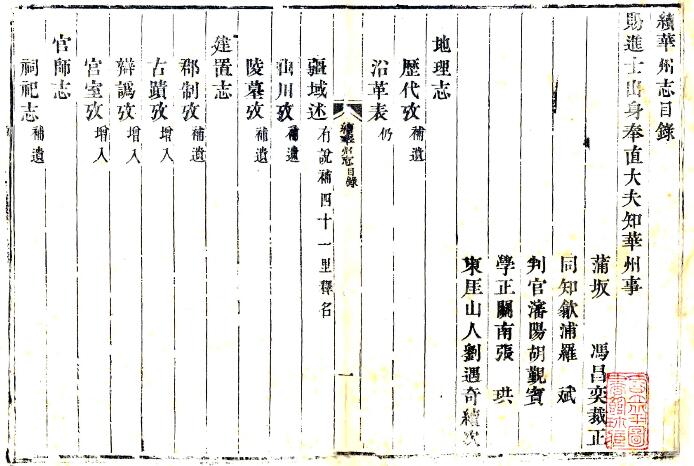 續華州志目錄
賜進士出身奉直大夫知華州事
蒲坂 馮昌奕裁正
同知歙浦羅 斌
判官瀋陽胡觀賓
學正關南張 珙
東厓山人劉遇奇續次
地理志
歷代攷補遺
沿革表仍
續華州志目錄 一
疆域述有說補四十一里釋名
山川攷補遺
陵墓攷補遺
建置志
郡制攷補遺
古蹟攷增入
辯譌攷增入
官室攷增入
官師志
祠祀志補遺